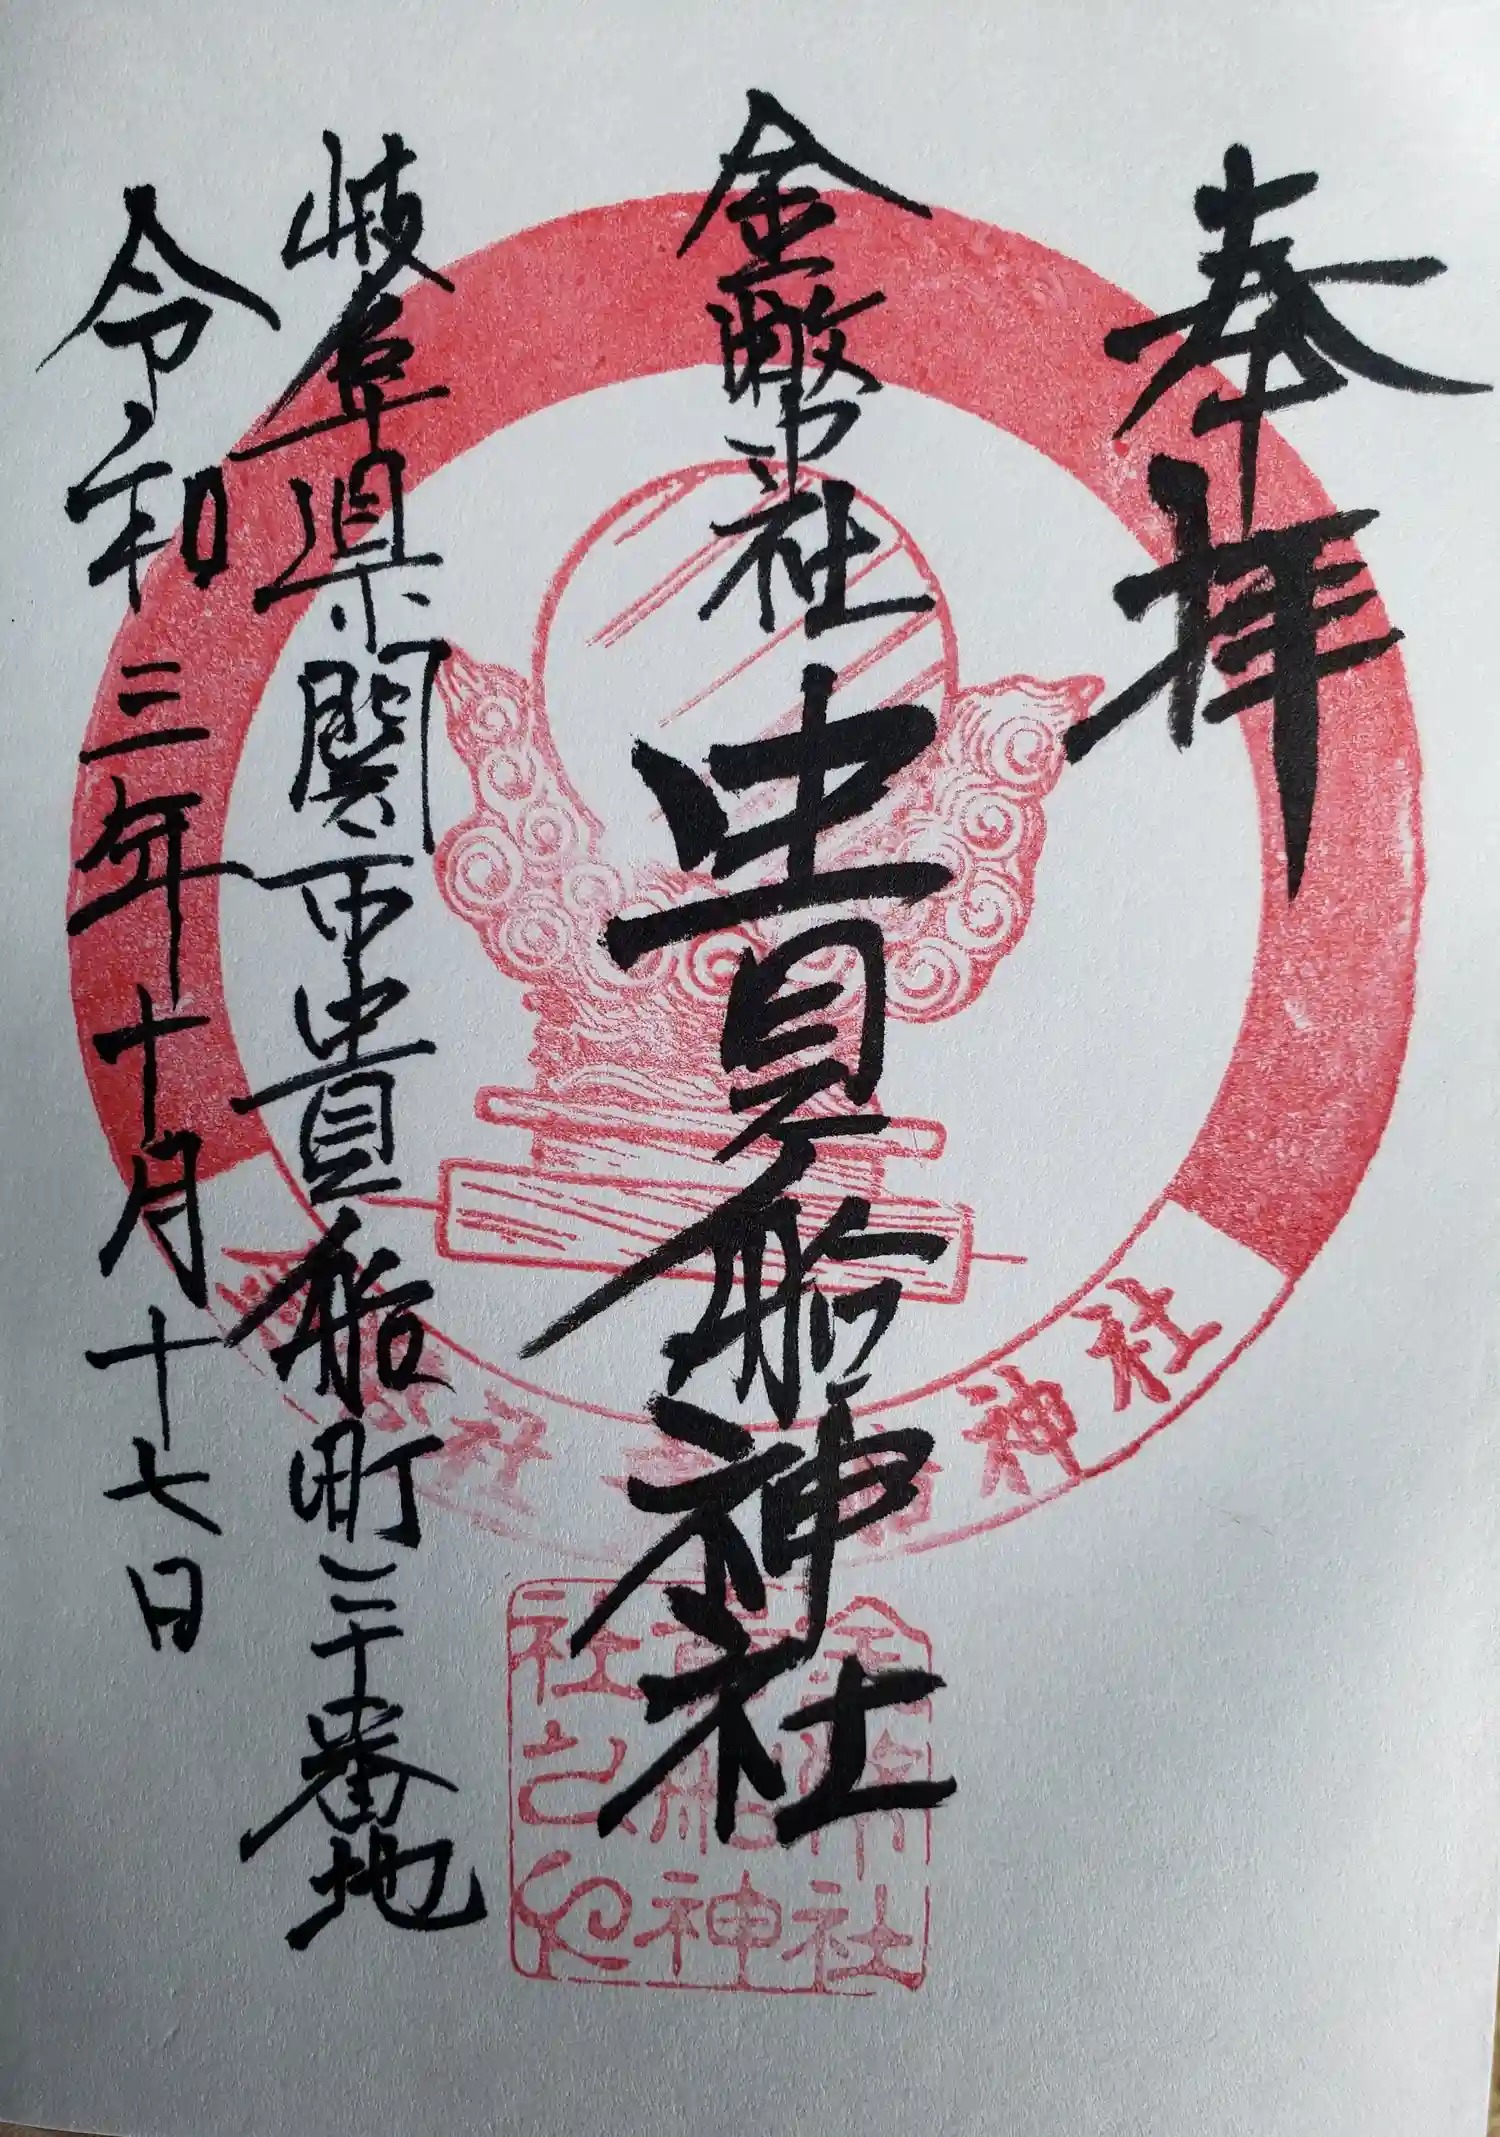 奉拝
金幣社 貴船神社
岐阜県関市貴船町二十番地
令和三年十月十七日
社 神社
金幣社
貴船神社
社之印